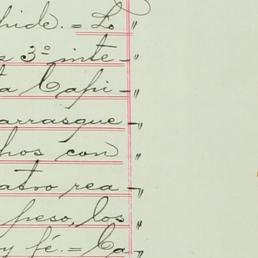 hide. = Lo
a 3º inte-"
ta Capi-"
arrasque "
hos con "
atro rea-"
peso, los "
y fé. = Ca-"